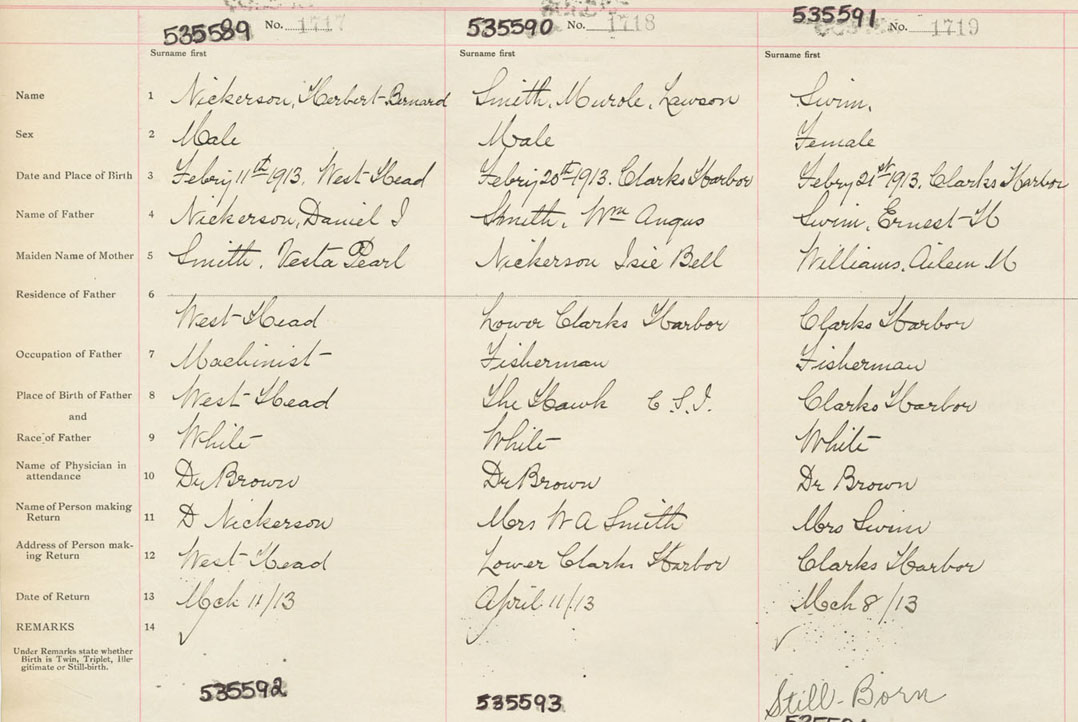 535589 No. 1717 535590 No. 1718 535591 No. 1719
Surname first Surname first Surname first
Name 1 Nickerson, Herbert-Bernard Smith, Murole, Lawson Swim,
Sex 2 Male Male Female
Date and Place of Birth 3 Febry 11th 1913. West-Head Febry 20th 1913. Clarks Harbor Febry 21st 1913. Clarks Harbor
Name of Father 4 Nickerson, Daniel I Smith, Wm Angus Swim, Ernest-H
Maiden Name of Mother 5 Smith, Vesta Pearl Nickerson Isie Bell Williams, Aileen M
Residence of Father 6 West-Head Lower Clarks Harbor Clarks Harbor
Occupation of Father 7 Machinist- Fisherman Fisherman
Place of Birth of Father 8 West-Head The Hawk C.S.I. Clarks Harbor
and
Race of Father 9 White White White
Name of Physician in
attendance 10 Dr Brown Dr Brown Dr Brown
Name of Person making
Return 11 D Nickerson Mrs W A Smith Mrs Swim
Address of Person mak-
ing Return 12 West-Head Lower Clarks Harbor Clarks Harbor
Date of Return 13 Mch 11/13 April 11/13 Mch 8/13
REMARKS 14
Under Remarks state whether
Birth is Twin, Triplet, Ille-
gitimate or Still-birth.
535592 535593 Still-Born